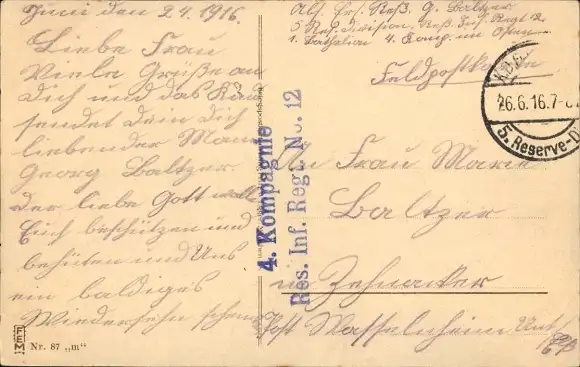 Juni den 24. 1916.
Liebe Frau
Viele Grüße an
Dich und das
sendet dein dich
liebender Mann
Georg Baltzer.
Der liebe Gott wolle
Euch beschützen und
behüten und Uns
ein baldiges
Wiedersehn
FEM
Nr. 87 „m"
G. Baltzer
5 Res. Division, Res. Inf. Regt 12
1. Bathalion 4. Komp. im Osten
Feldpostkarte
26.6.16.7-
5. Reserve-D
4. Kompagnie
Res. Inf. Regt. No. 12
An Frau Marie
Baltzer
in Zehnacker
Post Wasselnheim Unt